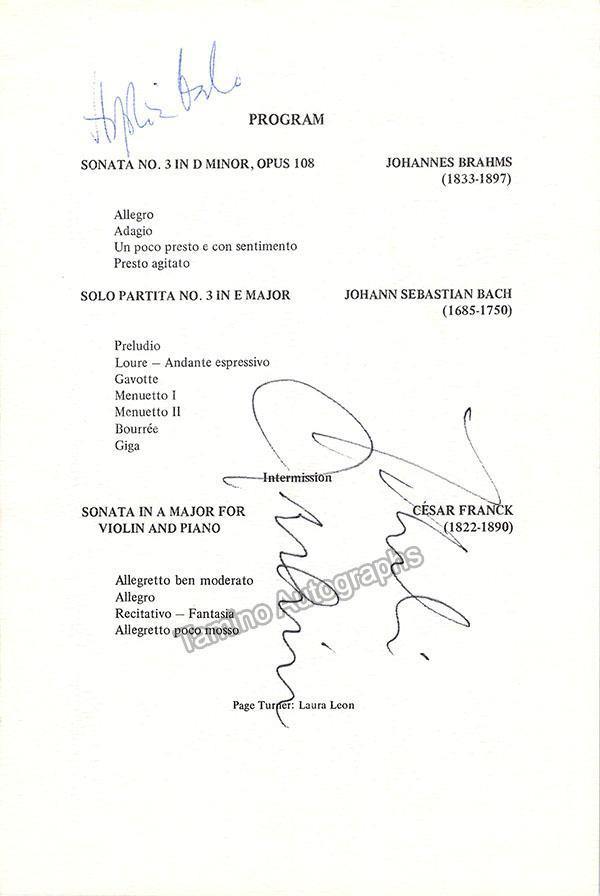 PROGRAM
SONATA NO. 3 IN D MINOR, OPUS 108 JOHANNES BRAHMS
(1833-1897)
Allegro
Adagio
Un poco presto e con sentimento
Presto agitato
SOLO PARTITA NO. 3 IN E MAJOR JOHANN SEBASTIAN BACH
(1685-1750)
Preludio
Loure – Andante espressivo
Gavotte
Menuetto I
Menuetto II
Bourrée
Giga
Intermission
SONATA IN A MAJOR FOR CÉSAR FRANCK
VIOLIN AND PIANO (1822-1890)
Allegretto ben moderato
Allegro
Recitativo – Fantasia
Allegretto poco mosso
Tamino Autographs
Page Turner: Laura Leon